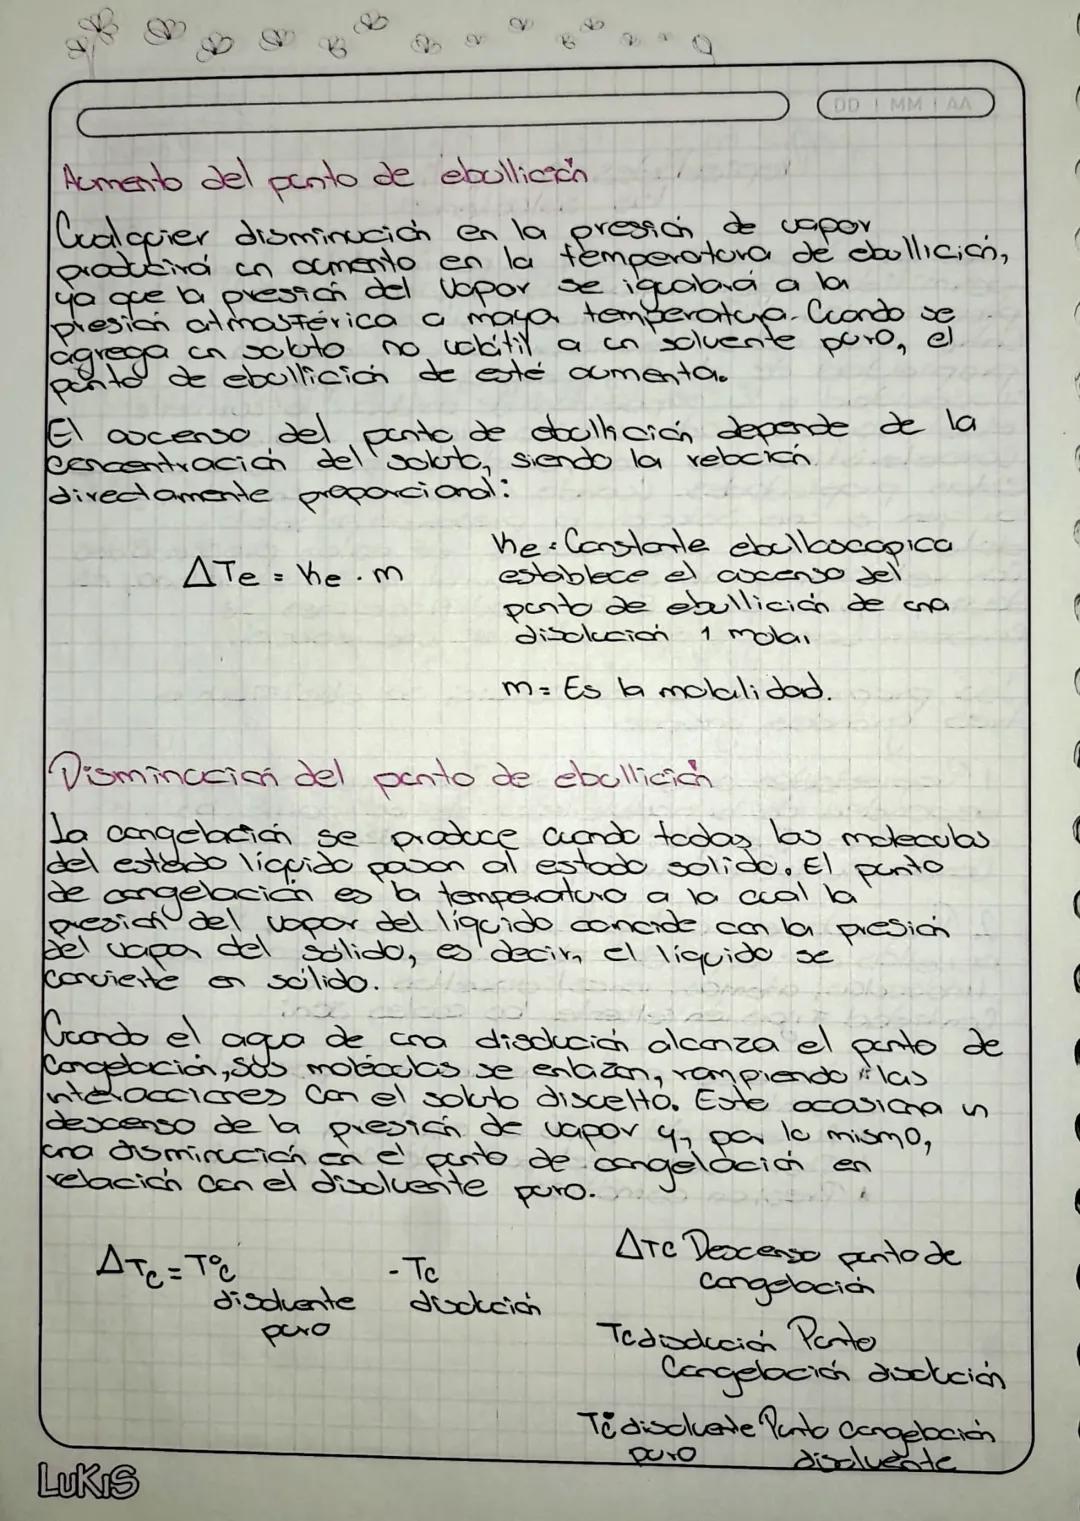 DD | MM | AA
Aumento del punto de ebullición
Cualquier disminución en la presión de vapor
producirá un aumento en la temperatura de ebullición,
ya que la presión del vapor se igualará a la
presión atmosférica a mayor temperatura. Cuando se
agrega un soluto no volátil a un solvente puro, el
punto de ebullición de esté aumenta.
El ascenso del punto de ebullición depende de la
concentración del soluto, siendo la relación
directamente proporcional:
Ke = Constante ebulloscopica
ΔTe = Ke . m
establece el ascenso del
punto de ebullición de una
disolución 1 molar
m = Es la molalidad.
Disminución del punto de ebullición
La congelación se produce cuando todas las moleculas
del estado líquido pasan al estado solido. El punto
de congelación es la temperatura a la cual la
presión del vapor del líquido coincide con la presión
del vapor del sólido, es decir, el líquido se
convierte en sólido.
Cuando el agua de una disolución alcanza el punto de
Congelación, sus moléculas se enlazan, rompiendo las
interacciones con el soluto disuelto. Este ocasiona un
descenso de la presión de vapor y, por lo mismo,
una disminución en el punto de congelación en
relación con el disolvente puro.
ΔTc = T°c - Tc
disolvente disolución
puro
ΔTc Descenso punto de
congelación
Tc disolución Punto
Congelación disolución
T°c disolvente Punto Congelación
puro disolvente
LUKIS